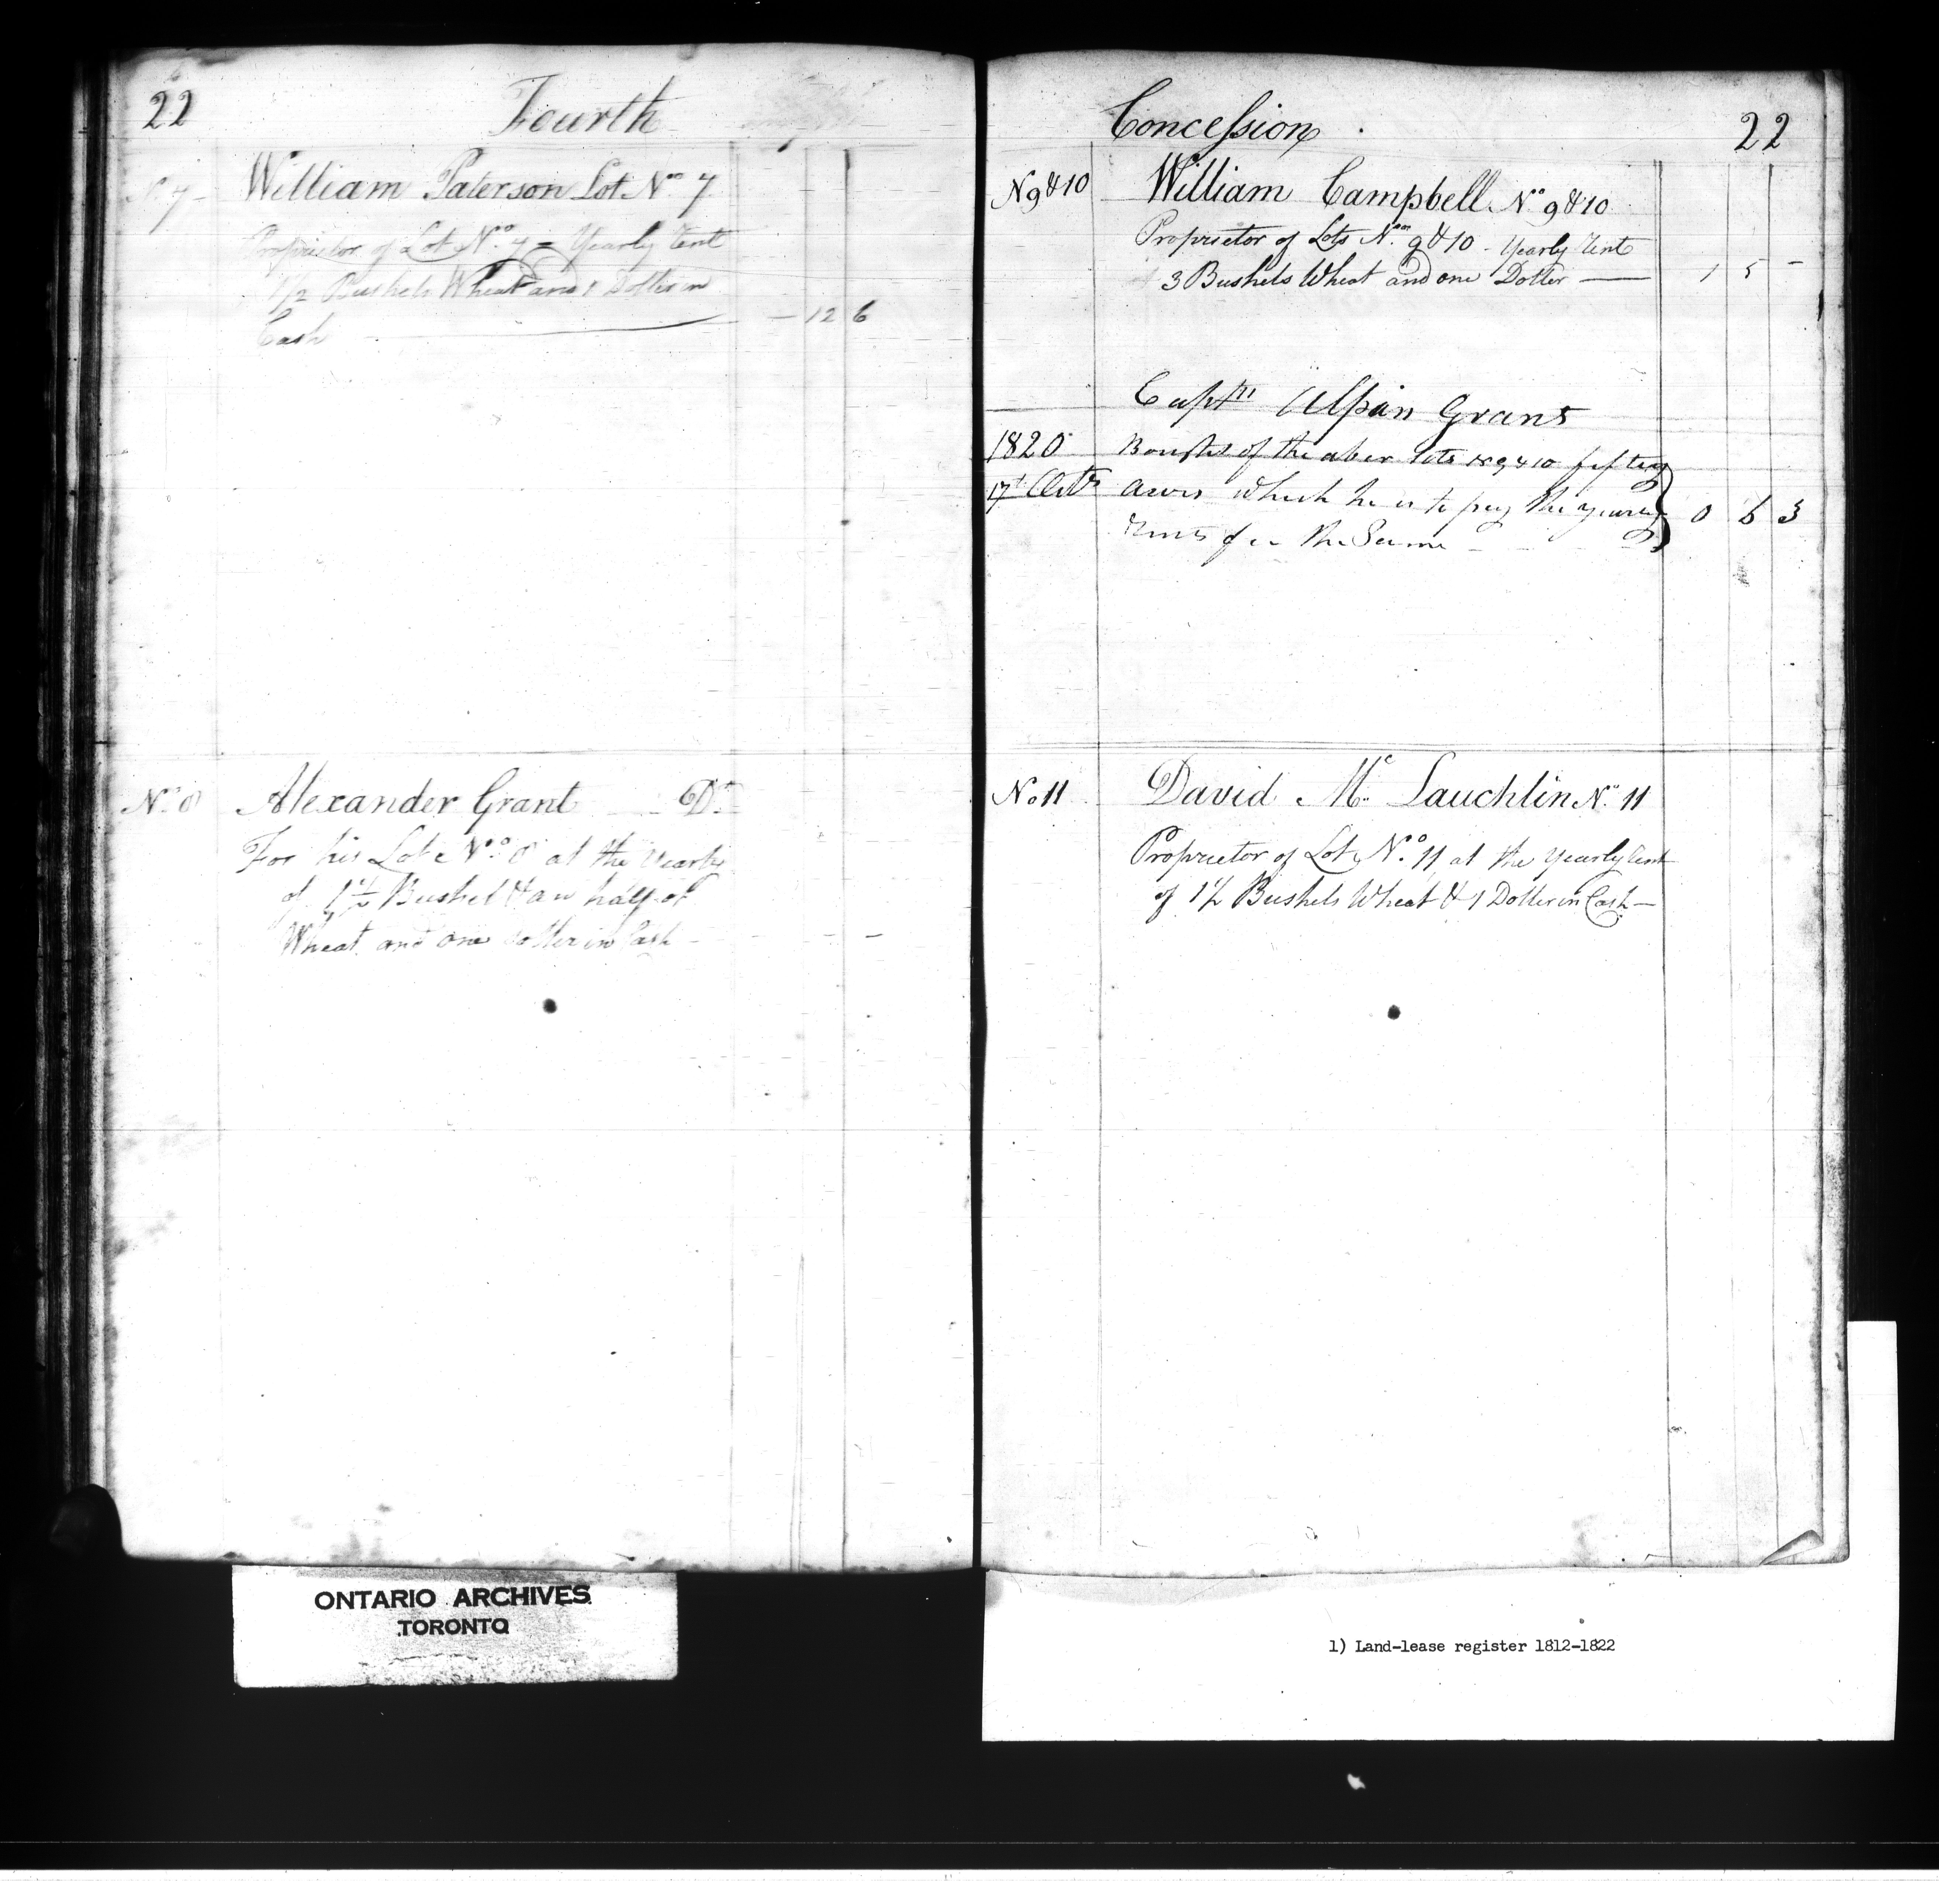 22 Fourth
N 7 William Paterson Lot No 7
Proprietor of Lot No. 7 - Yearly Rent
1 1/2 Bushels Wheat and 1 Doller in
Cash — 12 6
No. 8 Alexander Grant Dr.
For his Lot No. 8 at the Yearly
of 1 1/2 Bushel & an half of
Wheat and one Doller in Cash -
Concession 22
N 9 & 10 William Campbell No 9 & 10
Proprietor of Lots Nos. 9 & 10 - Yearly Rent
3 Bushels Wheat and one Doller — 1 5 -
Captn Alpin Grant
1820 Bought of the above lots 9 & 10 fifty
17th Octr Acres which he is to pay the yearly 0 6 3
Rents for the Same
No 11 David Mc Lauchlin No. 11
Proprietor of Lot No. 11 at the Yearly Rent
of 1 1/2 Bushels Wheat & 1 Doller in Cash —
ONTARIO ARCHIVES
TORONTO
1) Land-lease register 1812-1822